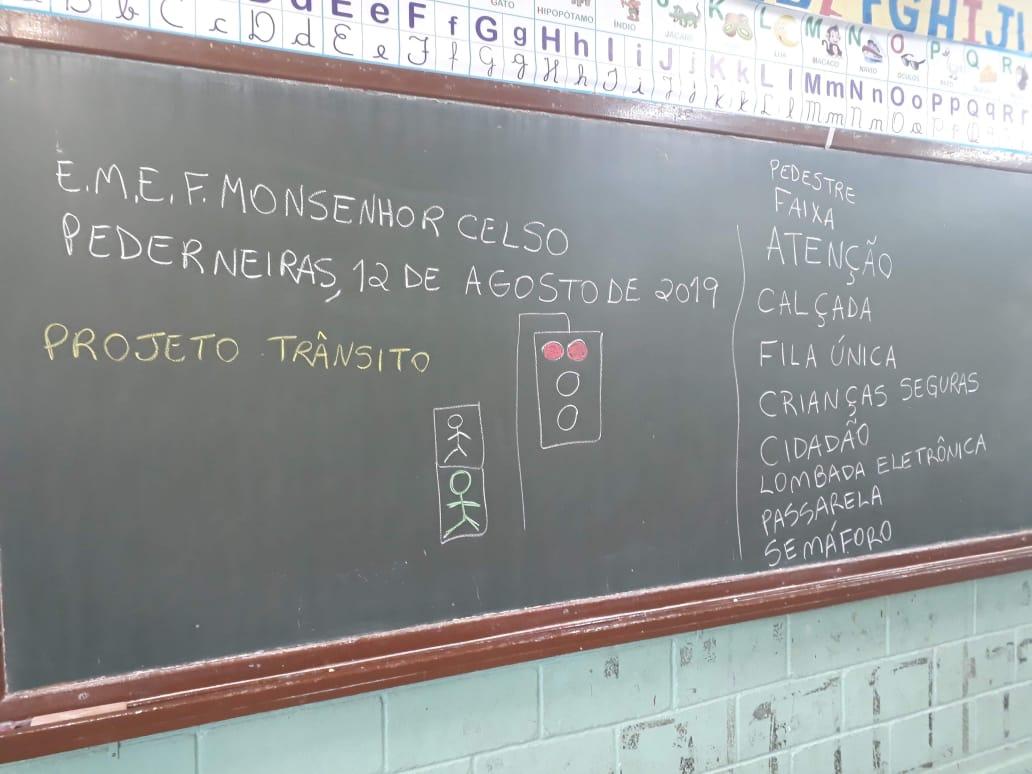 b C c D d E e F f G g H h I i J j K k L l M m N n O o P p Q q R r
GATO HIPOPÓTAMO ÍNDIO JACARÉ LUA MACACO NAVIO ÓCULOS
F G H I J
E.M.E.F. MONSENHOR CELSO
PEDERNEIRAS, 12 DE AGOSTO DE 2019
PROJETO TRÂNSITO
PEDESTRE
FAIXA
ATENÇÃO
CALÇADA
FILA ÚNICA
CRIANÇAS SEGURAS
CIDADÃO
LOMBADA ELETRÔNICA
PASSARELA
SEMÁFORO